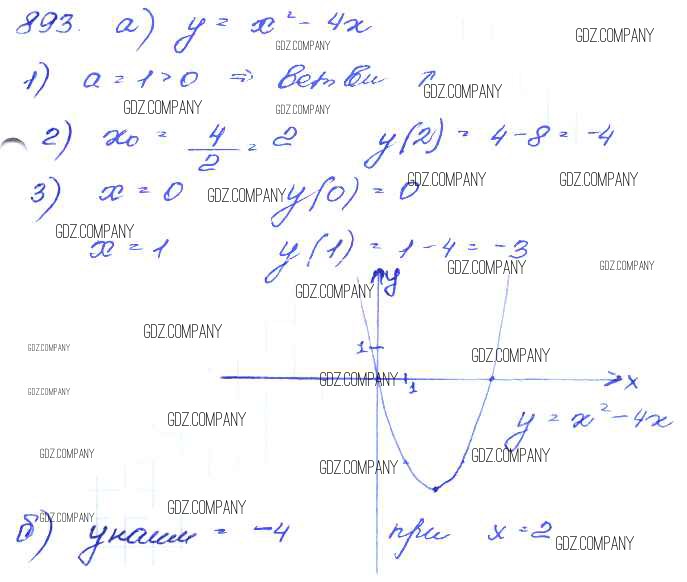 893. а) y = x² - 4x
GDZ.COMPANY GDZ.COMPANY
1) a = 1 > 0 ⇒ ветви ↑
GDZ.COMPANY GDZ.COMPANY GDZ.COMPANY
2) x₀ = 4/2 = 2 y(2) = 4 - 8 = -4
GDZ.COMPANY GDZ.COMPANY GDZ.COMPANY
3) x = 0 y(0) = 0
GDZ.COMPANY
x = 1 y(1) = 1 - 4 = -3
GDZ.COMPANY GDZ.COMPANY
y
GDZ.COMPANY
GDZ.COMPANY
GDZ.COMPANY 1 GDZ.COMPANY
GDZ.COMPANY x
GDZ.COMPANY 1
GDZ.COMPANY y = x² - 4x
GDZ.COMPANY GDZ.COMPANY
GDZ.COMPANY
GDZ.COMPANY GDZ.COMPANY
б) y наим = -4 при x = 2
GDZ.COMPANY